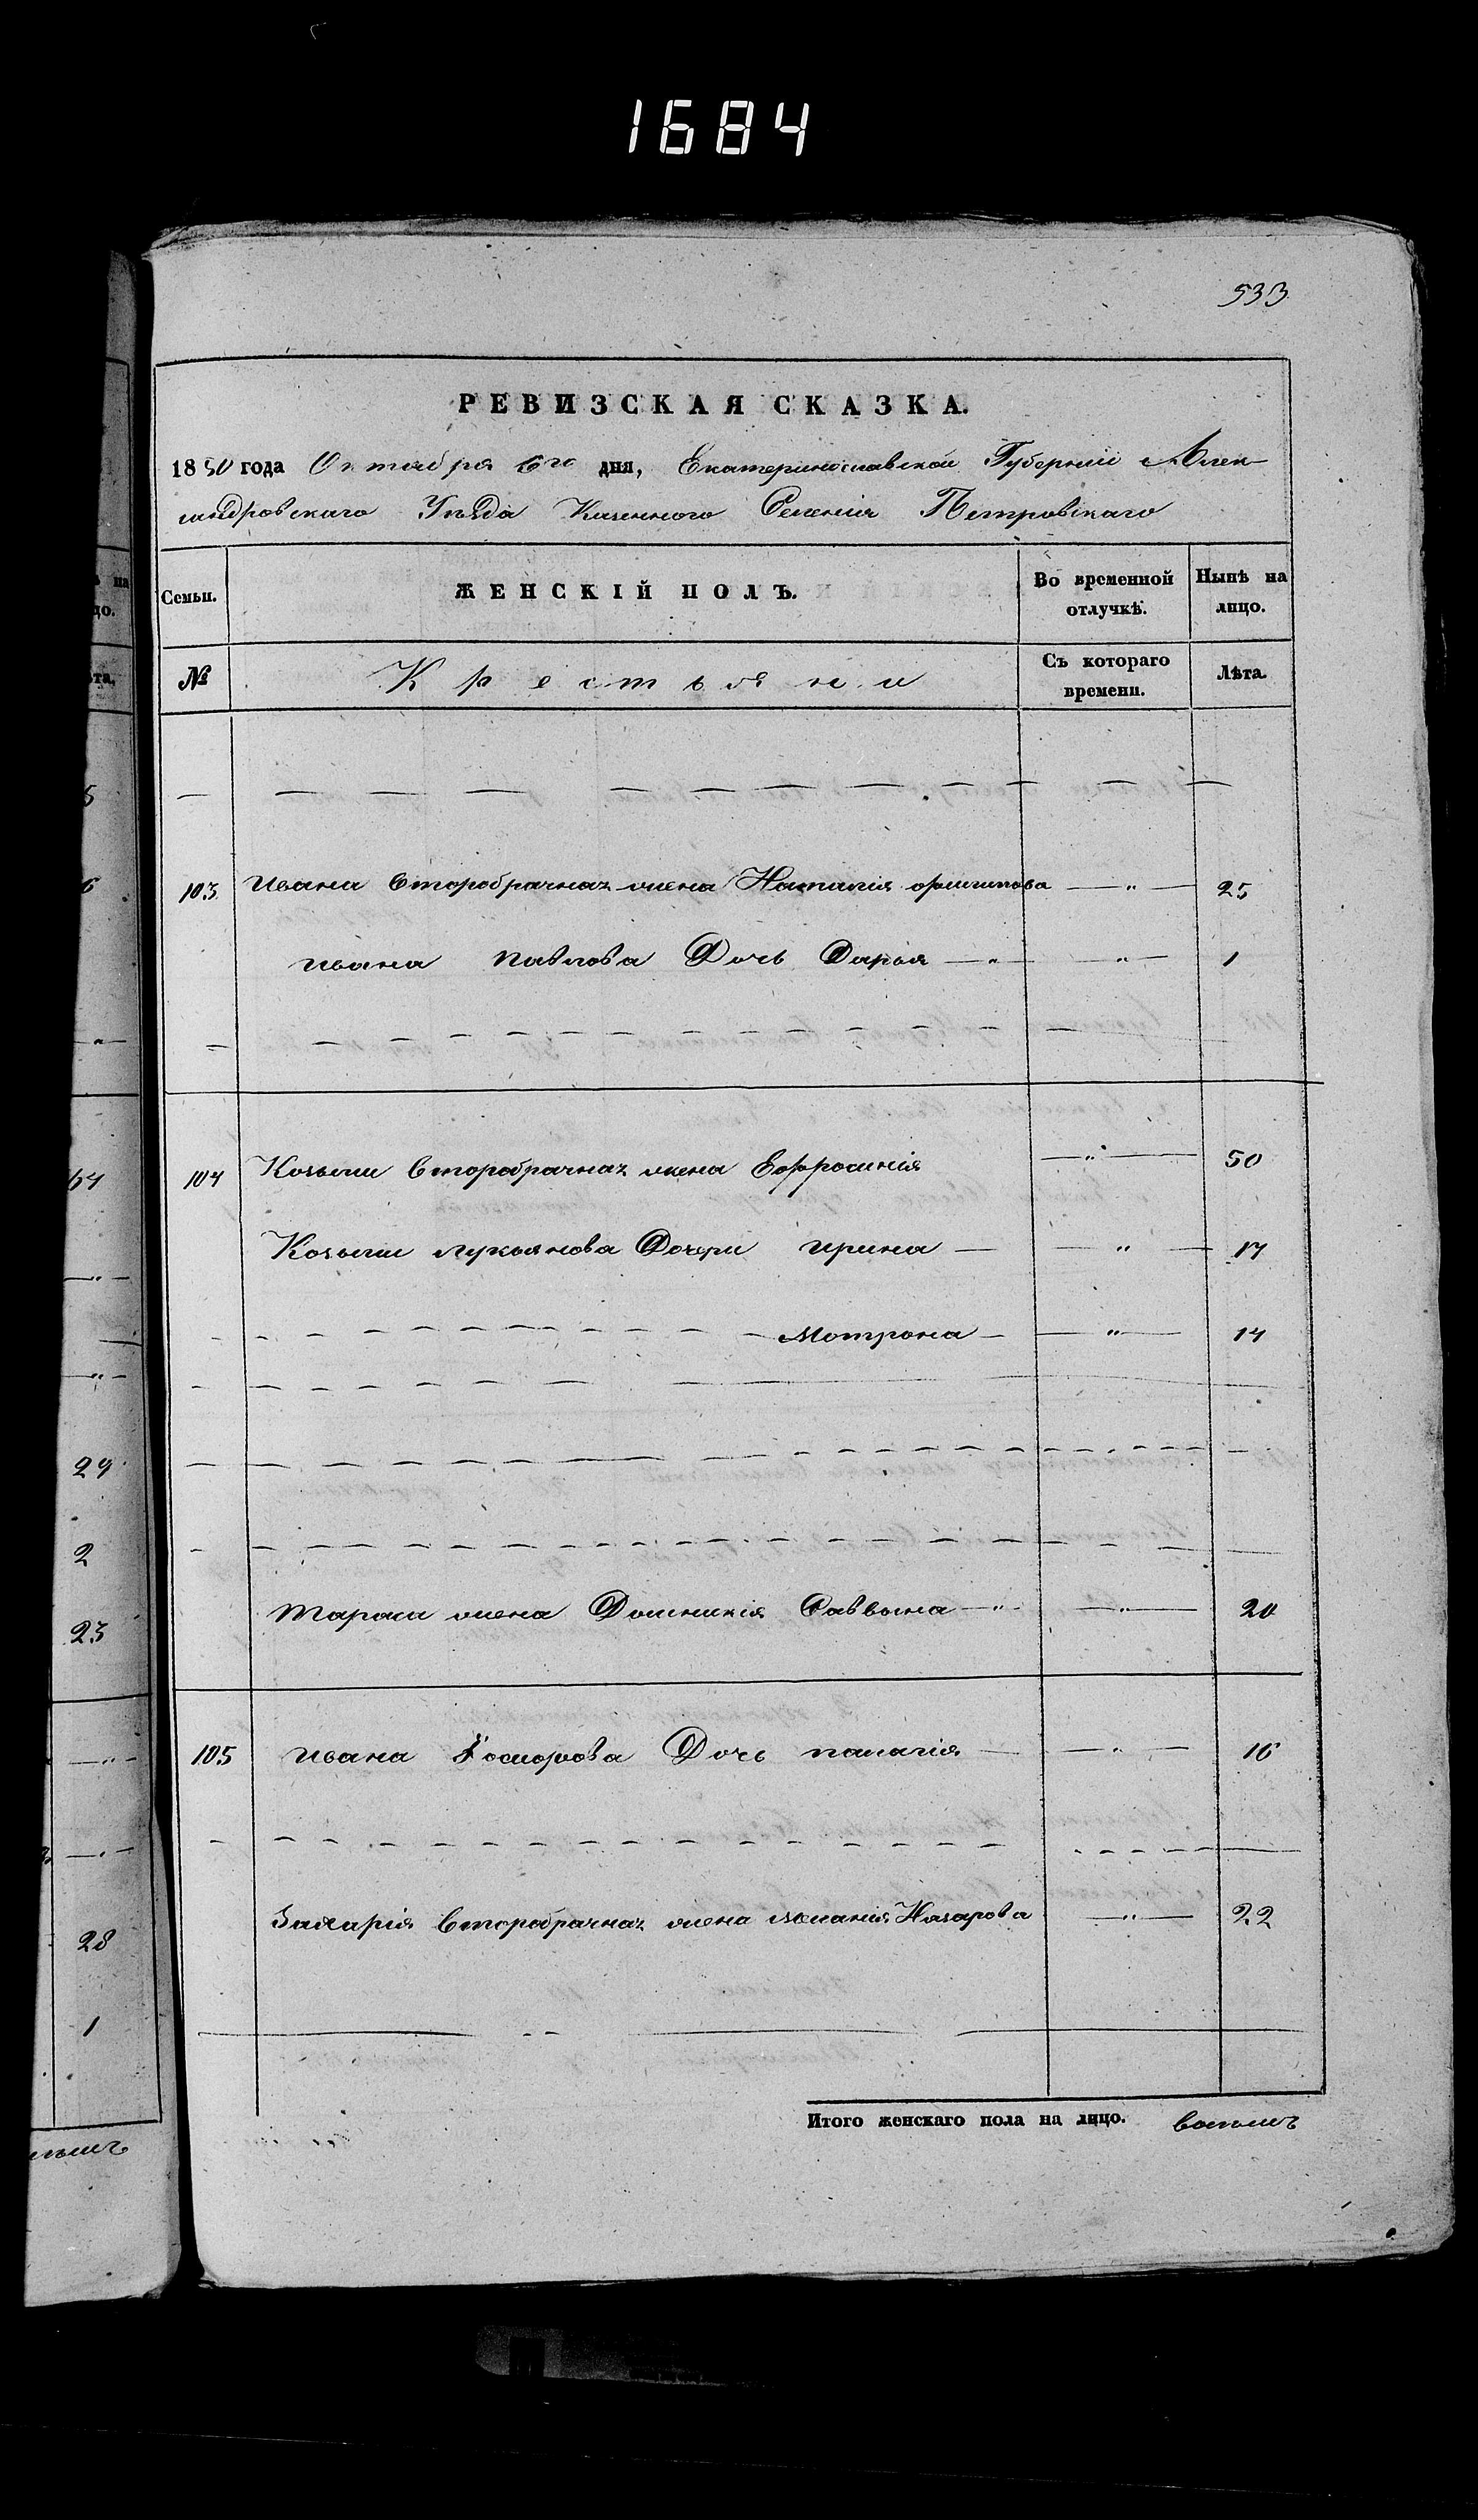 1684
533
РЕВИЗСКАЯ СКАЗКА.
1850 года Октября 6го дня, Екатеринославской Губерніи Алек-
сандровскаго Уѣзда Казенного Селенія Петровскаго
Семьи. ЖЕНСКІЙ ПОЛЪ. Во временной отлучкѣ. Нынѣ на лицо.
№ Крестьяни Съ котораго времени. Лѣта.
103 Ивана второбрачная жена Наталія — " — 25
Ивана Павлова Дочь Дарья — " — " — 1
104 Козьми второбрачная жена Ефросинія — " — 50
Козьми Лукьянова Дочери Ирина — — " — 17
Мотрона — — " — 14
Тараса жена Домникія Саввына — " — — " — 20
105 Ивана Дочь Палагія — — " — 16
Захарія второбрачная жена Меланія Назарова — " — 22
Итого женскаго пола на лицо. восемь
5
6
— " —
64
— " —
— " —
29
2
23
— " —
— " —
28
1